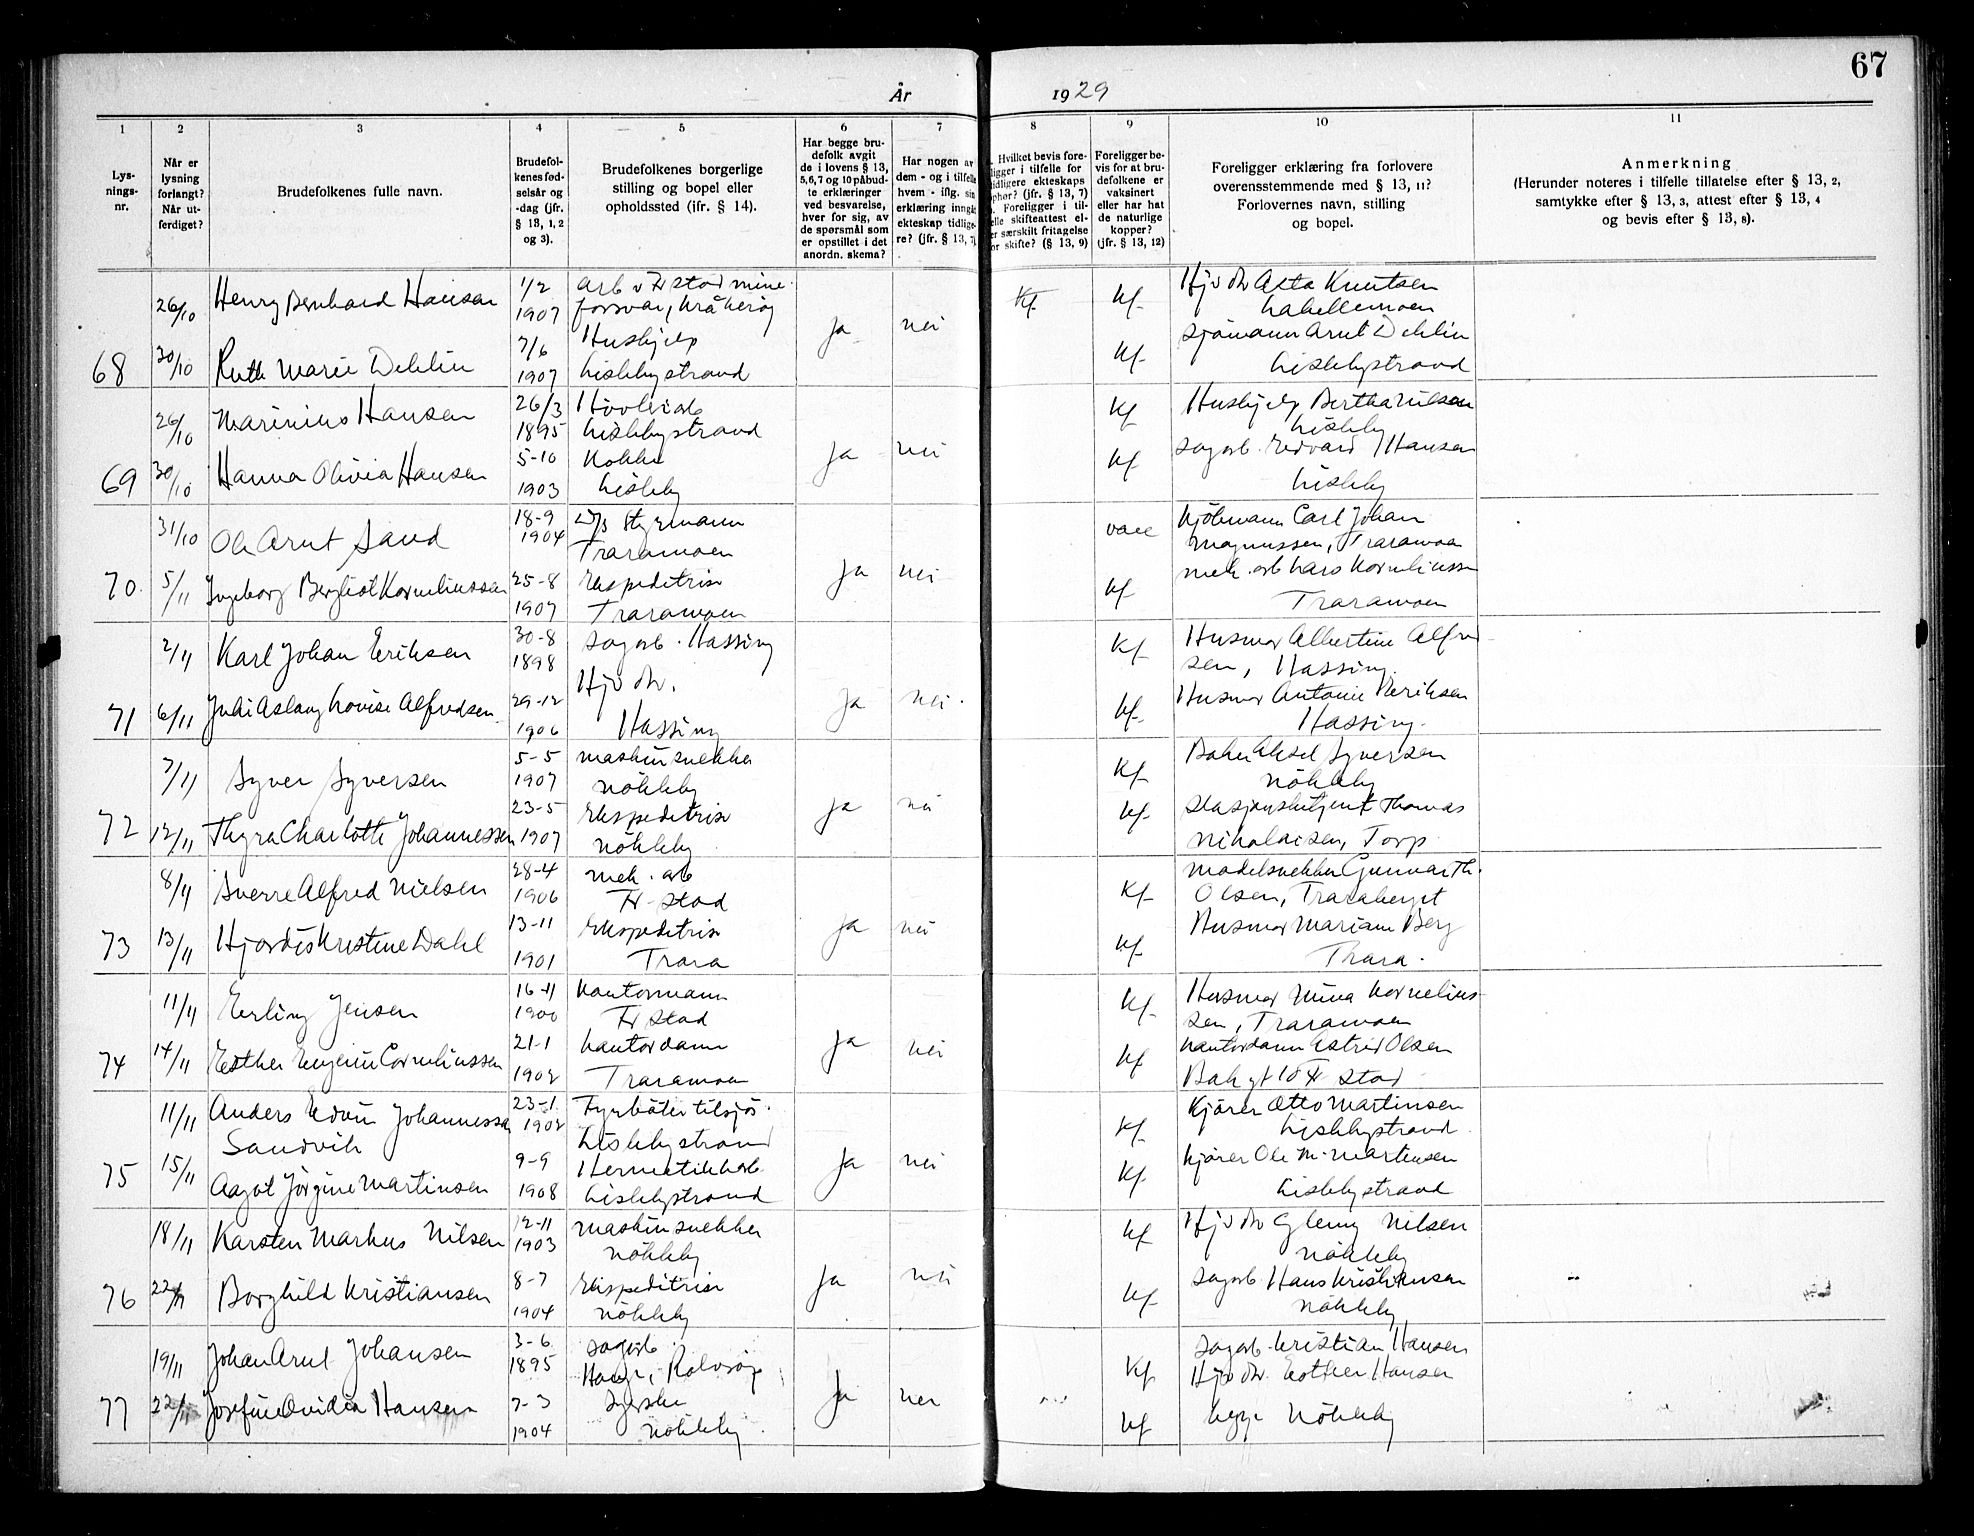 67
År 1929
1 2 3 4 5 6 7 8 9 10 11
Lys-
nings-
nr.
Når er
lysning
forlangt?
Når ut-
ferdiget?
Brudefolkenes fulle navn.
Brudefol-
kenes fød-
selsår og
-dag (jfr.
§ 13, 1, 2
og 3).
Brudefolkenes borgerlige
stilling og bopel eller
opholdssted (jfr. § 14).
Har begge bru-
defolk avgit
de i lovens § 13,
5, 6, 7 og 10 påbud-
te erklæringer
ved besvarelse,
hver for sig, av
de spørsmål som
er opstillet i det
anordn. skema?
Har nogen av
dem - og i tilfelle
hvem - iflg. sin
erklæring inngåt
ekteskap tidlige-
re? (jfr. § 13, 7)
Hvilket bevis fore-
ligger i tilfelle for
tidligere ekteskaps
ophør? (jfr. § 13, 7)
Foreligger i til-
felle skifteattest el-
ler særskilt fritagelse
for skifte? (§ 13, 9)
Foreligger be-
vis for at bru-
defolkene er
vaksinert
eller har hat
de naturlige
kopper?
(jfr. § 13, 12)
Foreligger erklæring fra forlovere
overensstemmende med § 13, 11?
Forlovernes navn, stilling
og bopel.
Anmerkning
(Herunder noteres i tilfelle tillatelse efter § 13, 2,
samtykke efter § 13, 3, attest efter § 13, 4
og bevis efter § 13, 8).
26/10 Henry Bernhard Hansen 1/2 1907 arb v Frstad mine-
forsvar, Kråkerøy Kf. Kf. Hjv dtr Asta Knutsen
Labellemoen
68 30/10 Ruth Marie Dehlin 7/6 1907 Hushjelp
Lislebystrand Ja nei Kf. Sjömann Arnt Dehlin
Lislebystrand
26/10 Marinius Hansen 26/3 1895 Hövleiarb
Lislebystrand Kf Hushjelp Bertha Nilsen
Lisleby
69 30/10 Hanna Olivia Hansen 5-10 1903 Kokke
Lisleby Ja nei Kf Sagarb. Edvard Hansen
Lisleby
31/10 Ole Arnt Sand 18-9 1904 D/s Styrmann
Traramoen vacc Kjöbmann Carl Johan
Magnussen, Traramoen
70. 5/11 Ingeborg Bergliot Korneliussen 25-8 1907 Ekspeditrise
Traramoen Ja nei Kf mek. arb Lars Korneliussen
Traramoen
2/11 Karl Johan Eriksen 30-8 1898 Sagarb. Hassing Kf Husmor Albertine Alfred-
sen, Hassing.
71 6/11 Juli Aslaug Lovise Alfredsen 29-12 1906 Hjv dtr.
Hassing Ja nei. Kf. Husmor Antonie Eriksen
Hassing.
7/11 Syver Syversen 5-5 1907 maskinsnekker
Nökleby Kf Baker Aksel Syversen
Nökleby
72 12/11 Thyra Charlotte Johannessen 23-5 1907 Ekspeditrise
Nökleby Ja nei Kf. Stasjonsbetjent Thomas
Nikolaisen, Torp
8/11 Sverre Alfred Nielsen 28-4 1906 mek. arb
Fr-stad Kf- Modelsnekker Gunnar Th.
Olsen, Traraberget
73 13/11 Hjordis Kristine Dahl 13-11 1901 Ekspeditrise
Trara Ja nei Kf- Husmor Mariane Berg
Trara.
11/11 Erling Jensen 16-11 1900 Kontormann
Fr stad Kf. Husmor Mina Kornelius-
sen, Traramoen
74 14/11 Esther Eugenie Corneliussen 21-1 1902 Kontordame
Traramoen Ja nei Kf Kontordame Astrid Olsen
Bakgt 10 Fr stad
11/11 Anders Edvin Johannessen
Sandvik 23-1 1902 Fyrböter tilsjös.
Lislebystrand Kf. Kjörer Otto Martinsen
Lislebystrand
75 15/11 Aagot Jörgine Martinsen 9-9 1908 Hermetikkarb.
Lislebystrand Ja nei Kf. Kjörer Ole M. Martinsen
Lislebystrand
18/11 Karsten Markus Nilsen 12-11 1903 Maskinsnekker
Nökleby Kf Hjv dtr Glenny Nilsen
Nökleby
76 22/11 Borghild Kristiansen 8-7 1904 Ekspeditrise
Nökleby Ja nei Kf- Sagarb. Hans Kristiansen
Nökleby
19/11 Johan Arnt Johansen 3-6 1895 Sagarb.
Hauge, Rolvsöy Kf Sagarb. Kristian Hansen
Hjv dtr. Esther Hansen
77 22/11 Josefine Ovidia Hansen 7-3 1904 Syerske
Nökleby. Ja nei Kf begge Nökleby